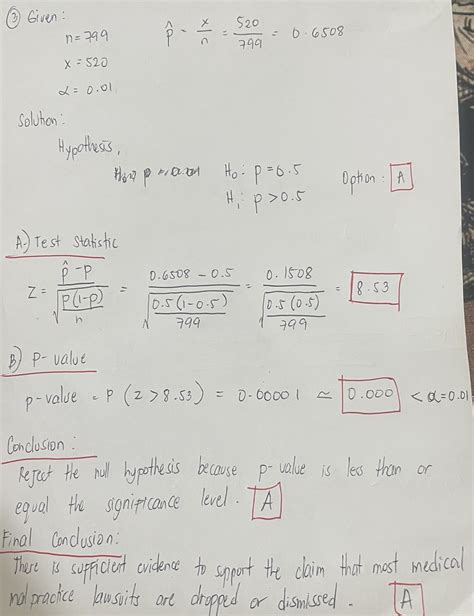 ③ Given:
n = 799
p̂ = x/n = 520/799 = 0.6508
x = 520
α = 0.01
Solution:
Hypothesis,
H₀: p = 0.5
H₁: p > 0.5
Option: A
A.) Test Statistic
Z = (p̂ - p)/√(p(1-p)/n) = (0.6508 - 0.5)/√(0.5(1-0.5)/799) = 0.1508/√(0.5(0.5)/799) = 8.53
B) P-value
p-value = P (Z > 8.53) = 0.00001 ≃ 0.000 < α=0.01
Conclusion:
Reject the null hypothesis because p-value is less than or
equal the significance level. A
Final Conclusion:
There is sufficient evidence to support the claim that most medical
malpractice lawsuits are dropped or dismissed. A